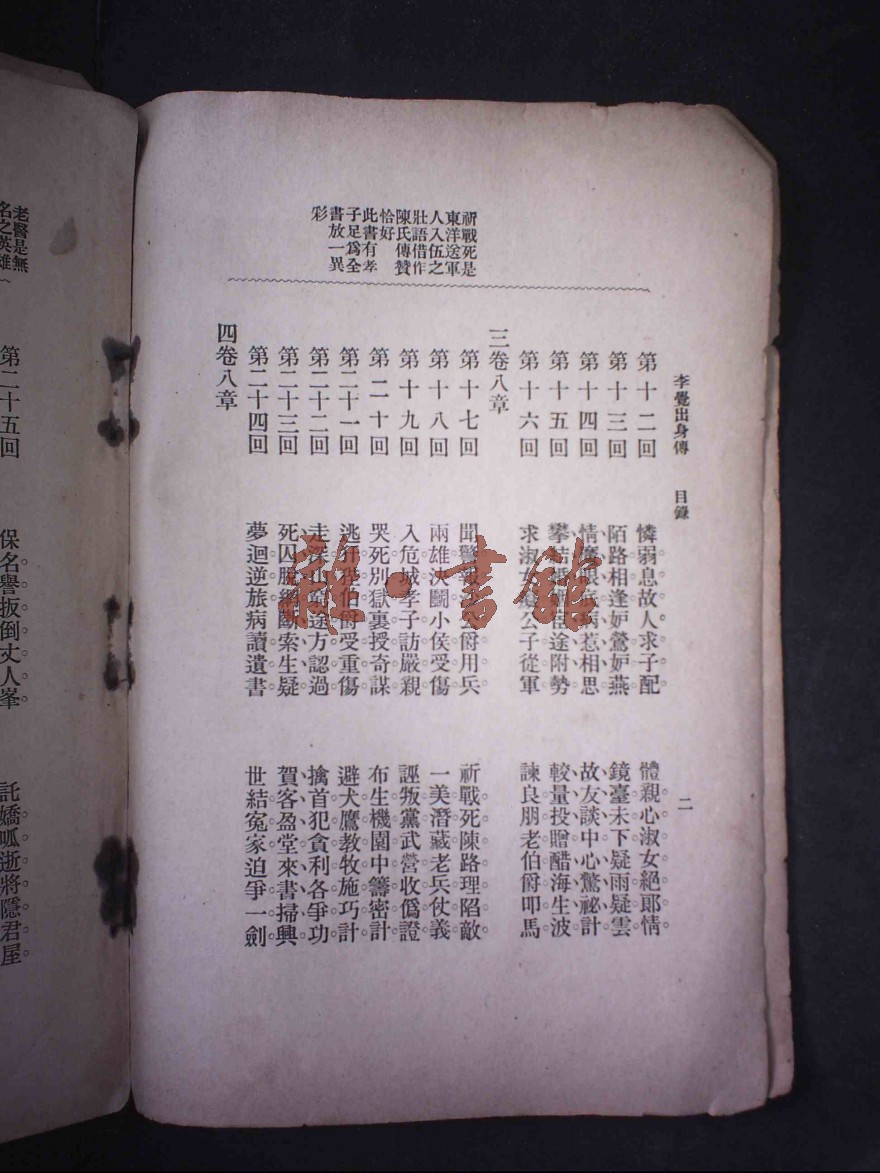 李覺出身傳　目錄　二
祈戰死是
東洋送軍
人入伍之
壯語借作
陳氏傳贊
恰好
此書有孝
子足爲全
書放一異
彩
第十二回　憐弱息故人求子配。　體親心淑女絕郞情。
第十三回　陌路相逢妒鶯妒燕　鏡臺未下疑雨疑雲
第十四回　情魔眼底病惹相思　故友談中心驚祕計
第十五回　攀結途附勢　較量投贈醋海生波
第十六回　求淑女公子從軍　諫良朋老伯爵叩馬
三卷八章
第十七回　聞警報公爵用兵。　祈戰死陳路理陷敵。
第十八回　兩雄決鬭小侯受傷　一美潛藏老兵仗義
第十九回　入危城孝子訪嚴親。　誣叛黨武營收僞證。
第二十回　哭死別獄裏授奇謀。　布生機園中籌密計。
第二十一回　逃犴狴伯爵受重傷。　避犬鷹教牧施巧計。
第二十二回　走深山窮途方認過。　擒首犯貪利各爭功。
第二十三回　死囚脫網斷索生疑　賀客盈堂來書掃興
第二十四回　夢迴逆旅病讀遺書。　世結冤家迫爭一劍。
四卷八章
老醫是無
名之英雄
第二十五回　保名譽扳倒丈人峯。　託嬌呱逝將隱君屋。
雜·書館